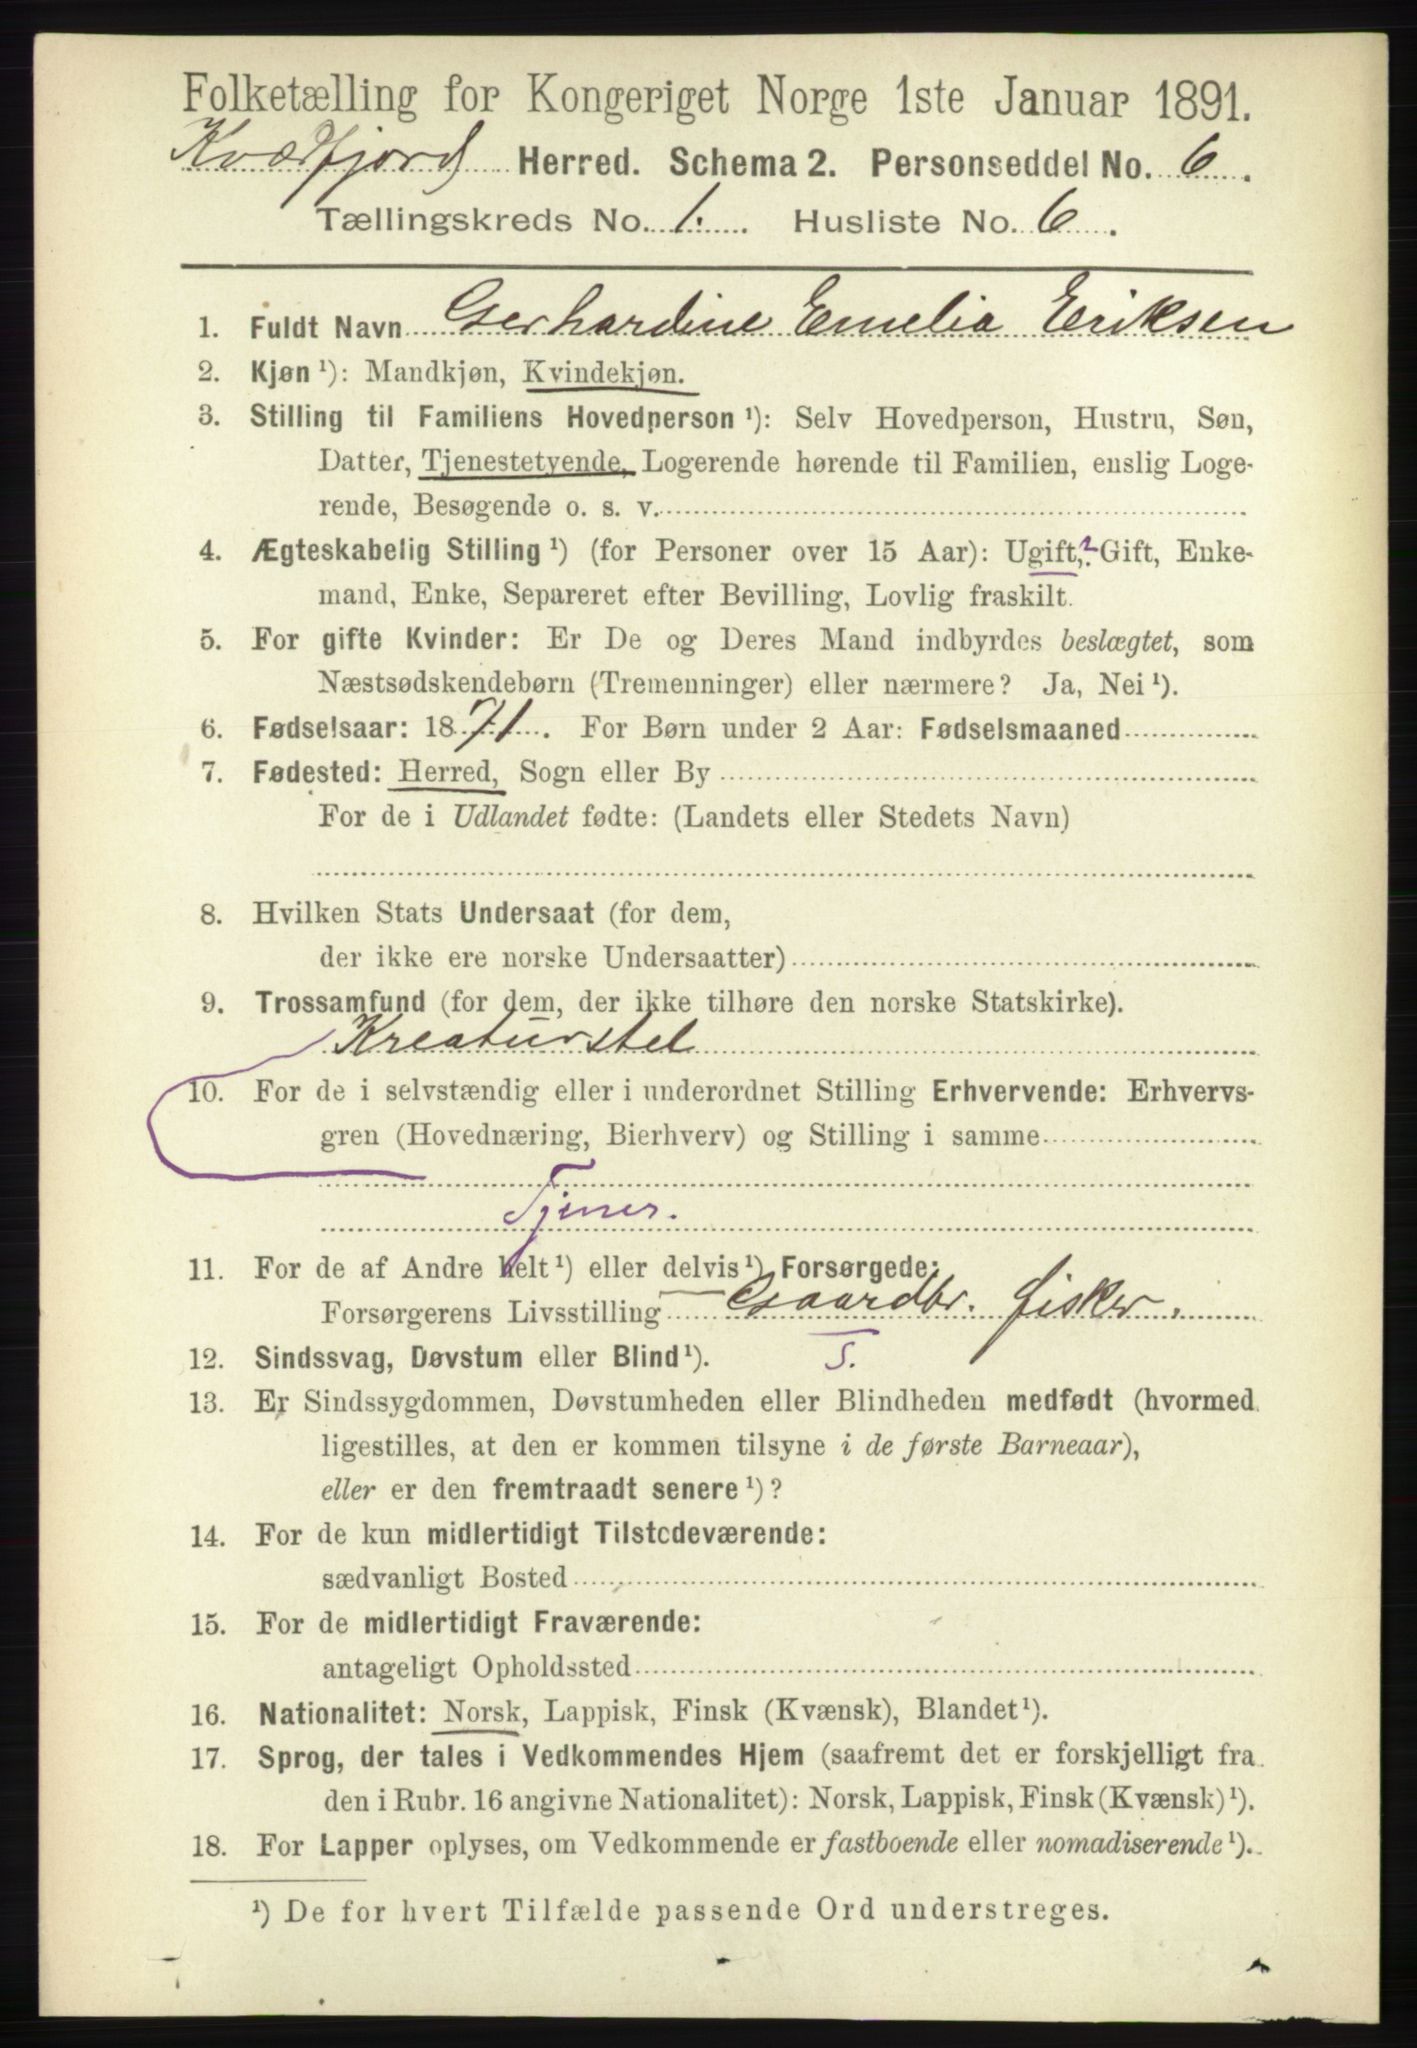 Folketælling for Kongeriget Norge 1ste Januar 1891.
Kvædfjord Herred. Schema 2. Personseddel No. 6.
Tællingskreds No. 1. Husliste No. 6.
1. Fuldt Navn Gerhardine Emelia Eriksen
2. Kjøn ¹): Mandkjøn, Kvindekjøn.
3. Stilling til Familiens Hovedperson ¹): Selv Hovedperson, Hustru, Søn,
Datter, Tjenestetyende, Logerende hørende til Familien, enslig Loge-
rende, Besøgende o. s. v.
4. Ægteskabelig Stilling ¹) (for Personer over 15 Aar): Ugift, ? Gift, Enke-
mand, Enke, Separeret efter Bevilling, Lovlig fraskilt.
5. For gifte Kvinder: Er De og Deres Mand indbyrdes beslægtet, som
Næstsødskendebørn (Tremenninger) eller nærmere? Ja, Nei ¹).
6. Fødselsaar: 1871. For Børn under 2 Aar: Fødselsmaaned
7. Fødested: Herred, Sogn eller By
For de i Udlandet fødte: (Landets eller Stedets Navn)
8. Hvilken Stats Undersaat (for dem,
der ikke ere norske Undersaatter)
9. Trossamfund (for dem, der ikke tilhøre den norske Statskirke).
Kreaturstel
10. For de i selvstændig eller i underordnet Stilling Erhvervende: Erhvervs-
gren (Hovednæring, Bierhverv) og Stilling i samme
Tjener.
11. For de af Andre helt ¹) eller delvis ¹) Forsørgede:
Forsørgerens Livsstilling Gaardbr. fisker.
12. Sindssvag, Døvstum eller Blind ¹). S.
13. Er Sindssygdommen, Døvstumheden eller Blindheden medfødt (hvormed
ligestilles, at den er kommen tilsyne i de første Barneaar),
eller er den fremtraadt senere ¹)?
14. For de kun midlertidigt Tilstedeværende:
sædvanligt Bosted
15. For de midlertidigt Fraværende:
antageligt Opholdssted
16. Nationalitet: Norsk, Lappisk, Finsk (Kvænsk), Blandet ¹).
17. Sprog, der tales i Vedkommendes Hjem (saafremt det er forskjelligt fra
den i Rubr. 16 angivne Nationalitet): Norsk, Lappisk, Finsk (Kvænsk) ¹).
18. For Lapper oplyses, om Vedkommende er fastboende eller nomadiserende ¹).
¹) De for hvert Tilfælde passende Ord understreges.